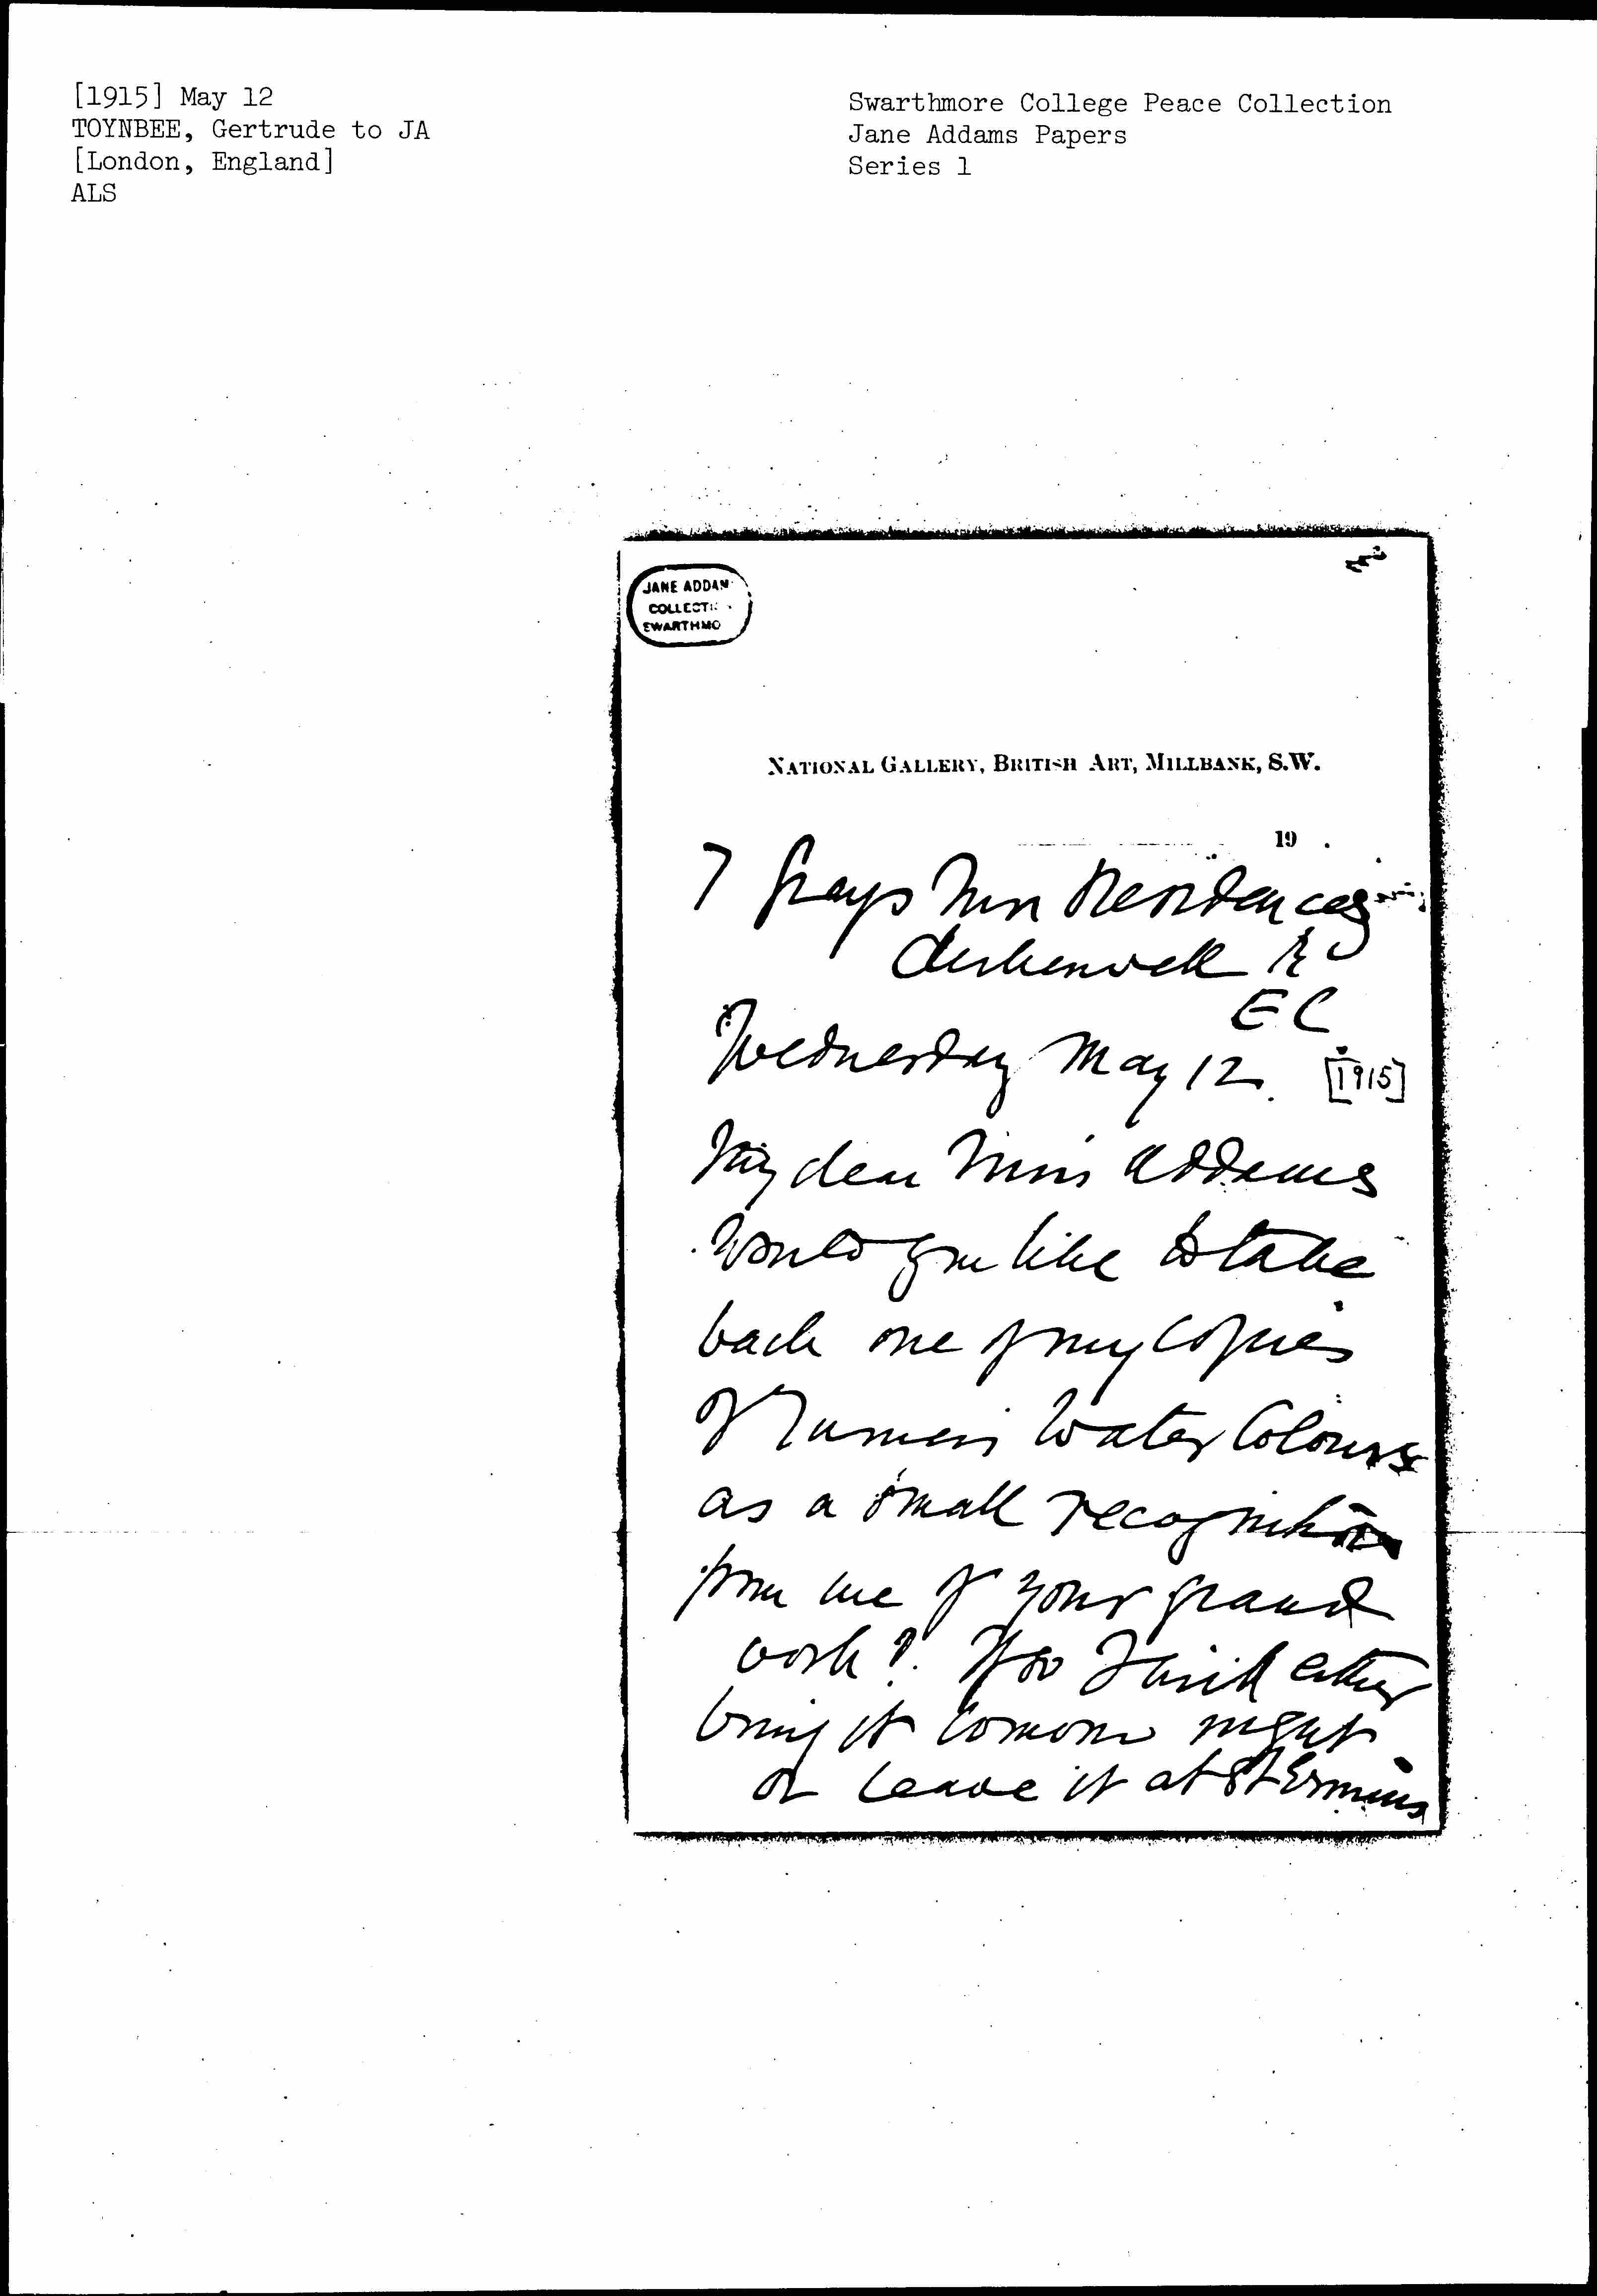 [1915] May 12
TOYNBEE, Gertrude to JA
[London, England]
ALS
Swarthmore College Peace Collection
Jane Addams Papers
Series 1
JANE ADDAM
COLLECTI
SWARTHMO
NATIONAL GALLERY, BRITISH ART, MILLBANK, S.W.
19 .
7 Grays Inn Residences
Clerkenwell Rd
EC
Wednesday May 12. [1915]
My dear Miss Addams
Would you like to take
back one of my copies
of Turners Water Colours
as a small recognition
from me of your grand
work? If so I will either
bring it tomorrow night
or leave it at St Ermins